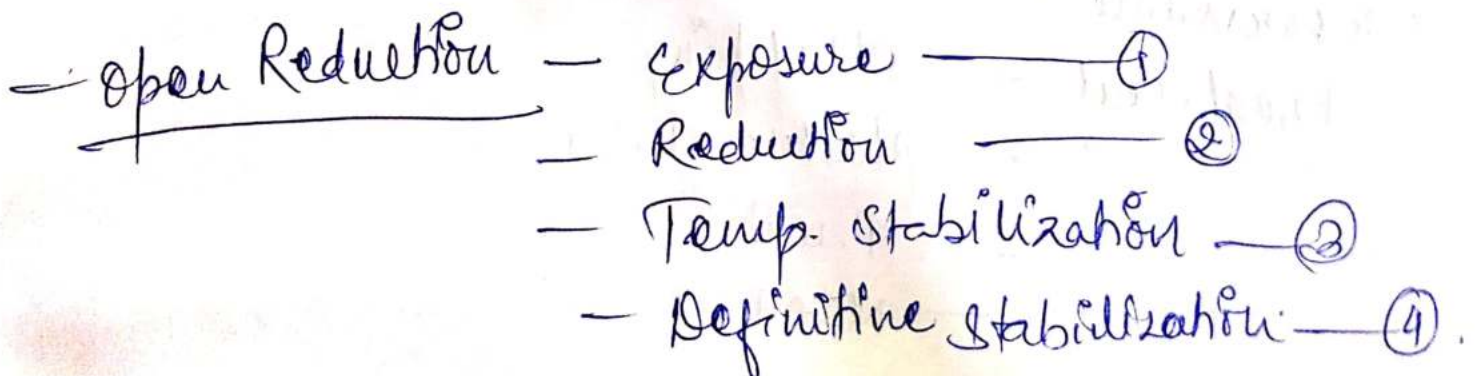 - Open Reduction - Exposure - ①
- Reduction - ②
- Temp. Stabilization - ③
- Definitive Stabilization - ④.